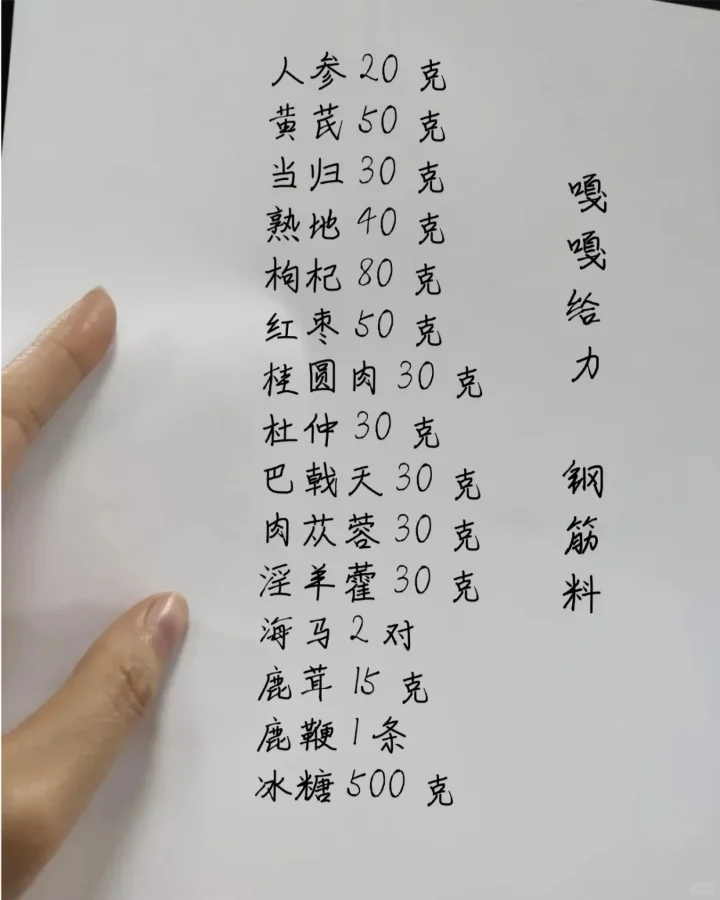 人参 20 克
黄芪 50 克
当归 30 克
熟地 40 克
枸杞 80 克
红枣 50 克
桂圆肉 30 克
杜仲 30 克
巴戟天 30 克
肉苁蓉 30 克
淫羊藿 30 克
海马 2 对
鹿茸 15 克
鹿鞭 1 条
冰糖 500 克
嘎嘎给力 钢筋料